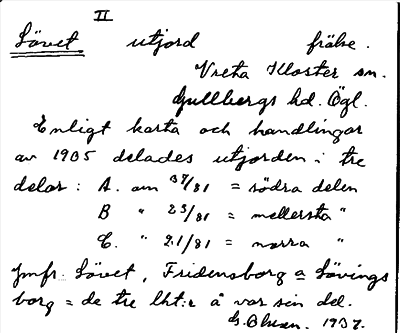 II
Lövet utjord frälse.
Vreta Kloster sn.
Gullbergs hd. Ögl.
Enligt karta och handlingar
av 1905 delades utjorden i tre
delar: A. om 37/81 = södra delen
B " 23/81 = mellersta "
C. " 21/81 = norra "
Jmfr. Lövet, Fridensborg o Lövings
borg = de tre lht:r å var sin del.
G. Olsson. 1937.